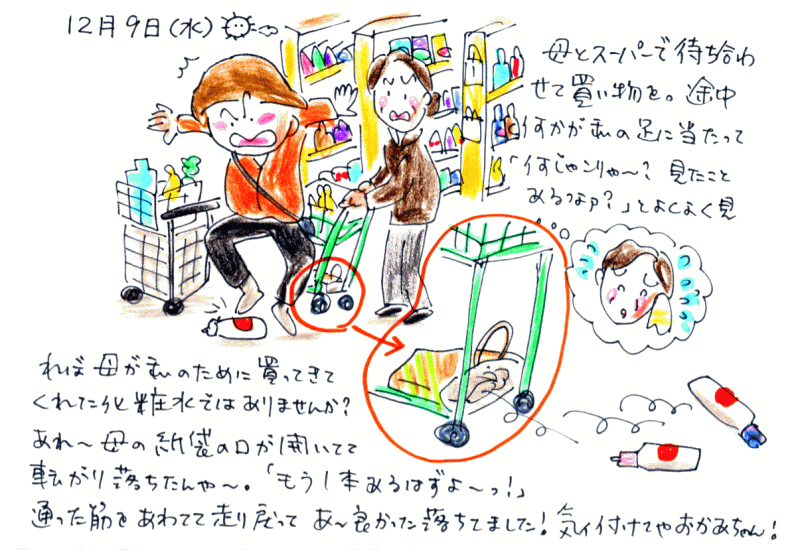 12月9日(水)
母とスーパーで待ち合わ
せて買い物を。途中
何かが私の足に当たって
「何じゃこりゃ〜? 見たこと
あるなァ?」とよくよく見
れば母が私のために買ってきて
くれた化粧水ではありませんか?
あれ〜母の紙袋の口が開いてて
転がり落ちたんや〜。「もう1本あるはずよ〜っ!」
通った筋をあわてて走り戻って あ〜良かった落ちてました! 気ィ付けてやおかあちゃん!